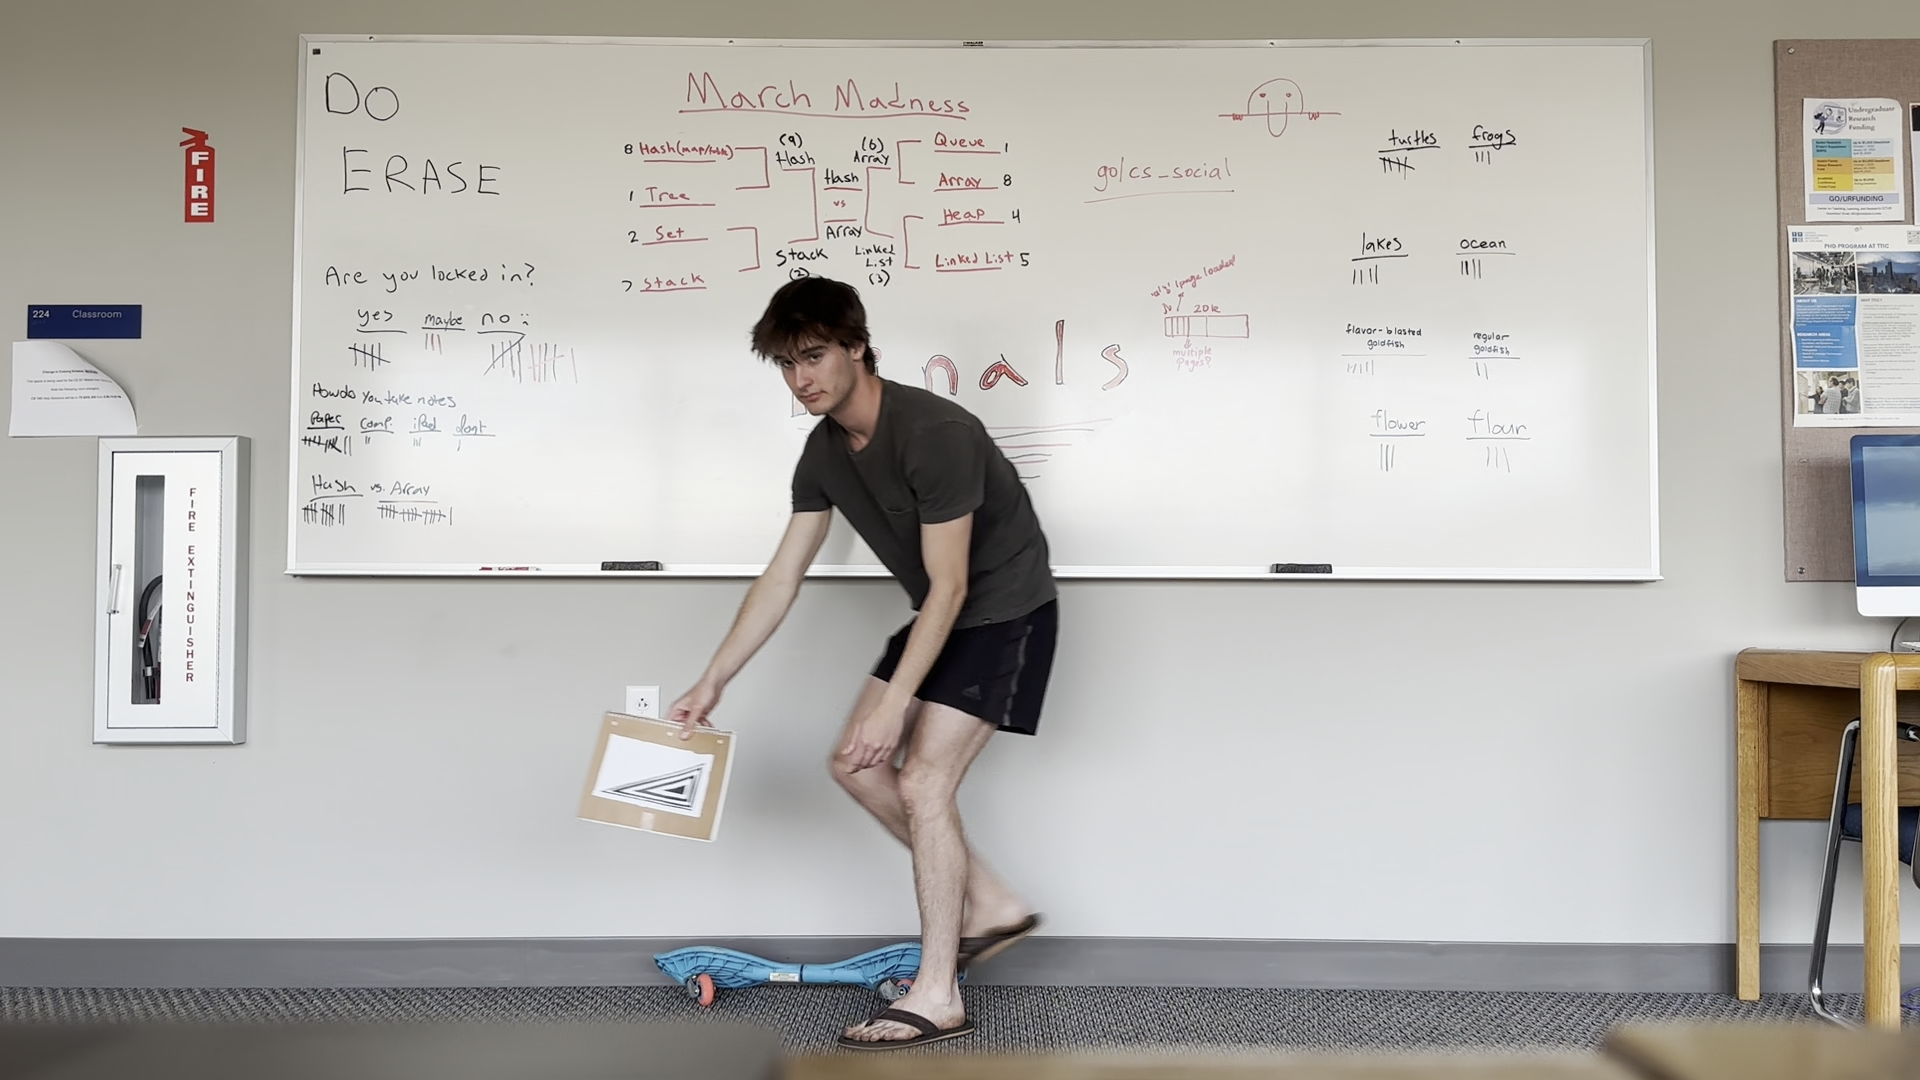 DO
ERASE
FIRE
224 Classroom
FIRE EXTINGUISHER
Are you locked in?
yes maybe no :
How do you take notes
Paper comp. iPad don't
Hash vs. Array
March Madness
8 Hash(map/table)
1 Tree
2 Set
7 Stack
(9)
Hash
Stack
(2)
Hash
vs
Array
(6)
Array
Linked
List
(3)
Queue 1
Array 8
Heap 4
Linked List 5
nals
go/cs_social
1 page loaded!
20k
multiple
pages?
turtles frogs
lakes ocean
flavor-blasted
goldfish
regular
goldfish
flower flour
Undergraduate
Research
Funding
GO/URFUNDING
PHD PROGRAM AT TTIC
ABOUT US
RESEARCH AREAS